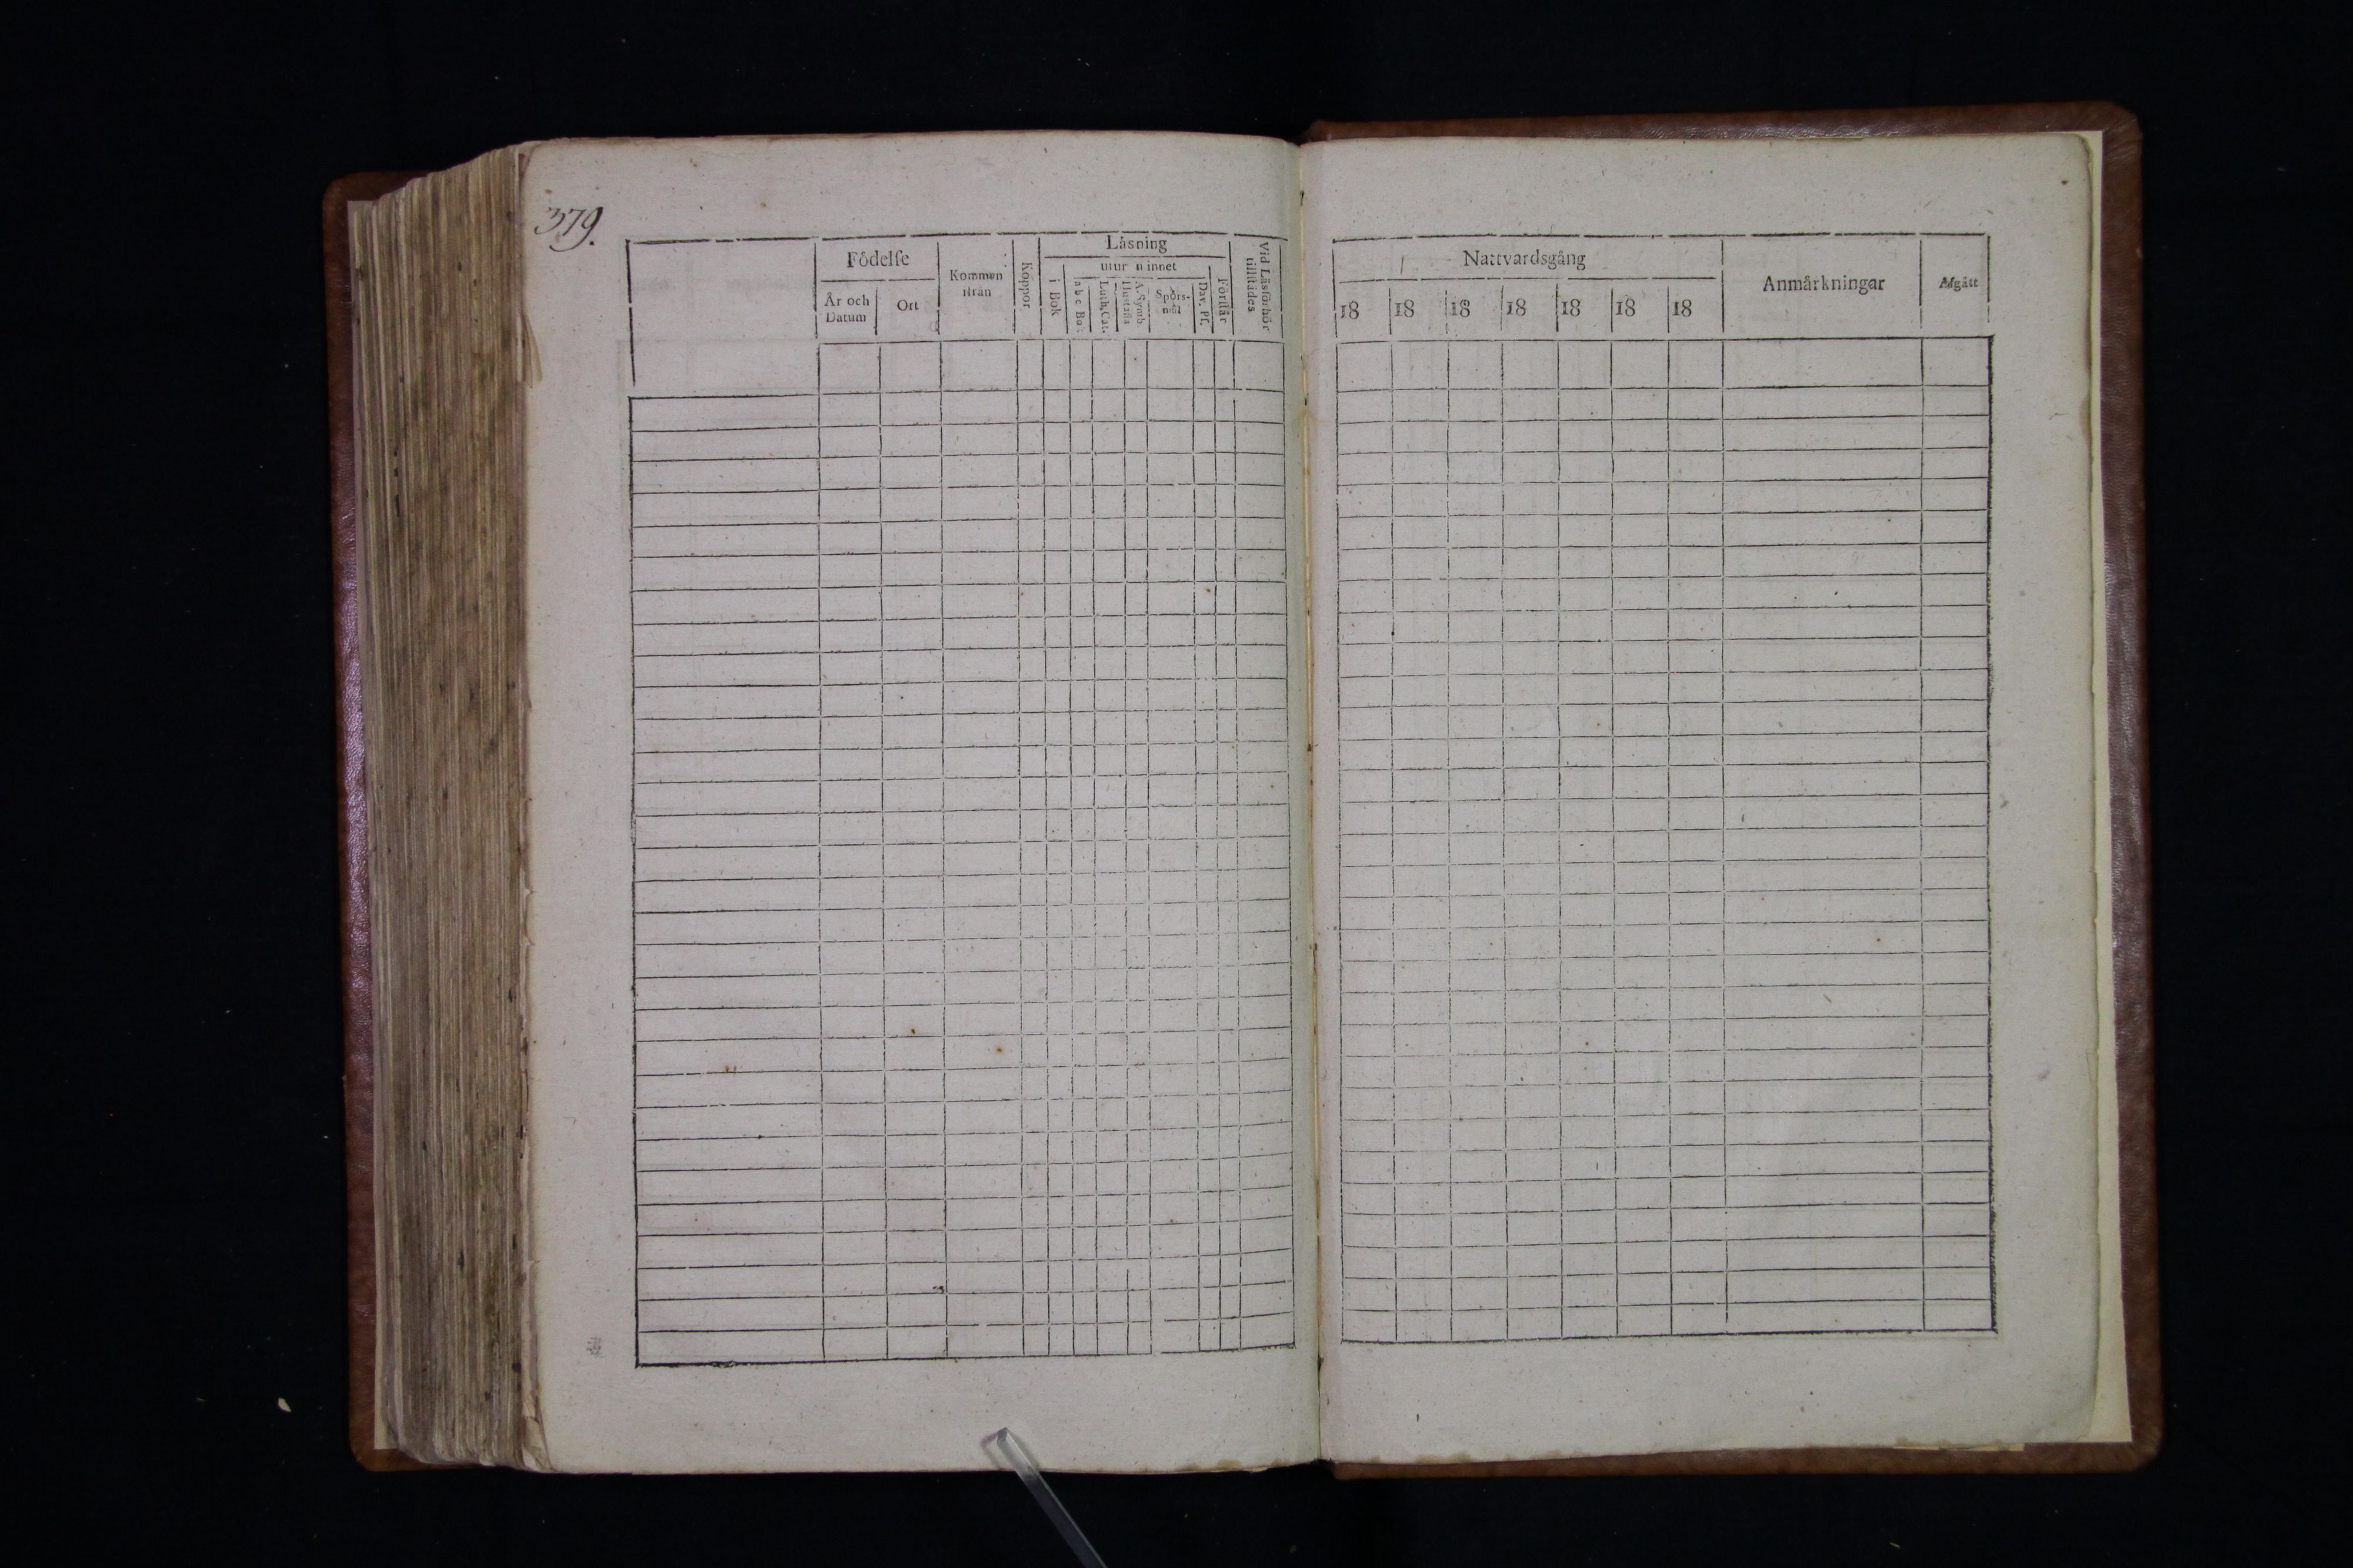 379.
Födelse
År och Datum
Ort
Kommen ifrån
Koppor
Läsning
i Bok
utur minnet
a b c Bok
Luth. Cat.
A. Symb. Hustafla
Spörs- mål
Dav. Ps.
Förstår
Vid Läsförhör tillstädes
Nattvardsgång
18 18 18 18 18 18 18
Anmärkningar
Afgått